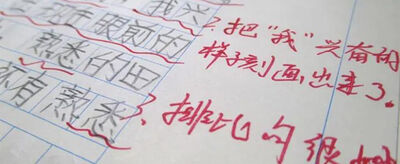 我兴
现在眼前的
熟悉的田
还有熟悉
把“我”兴奋的
样子刻画出来了。
排比句很